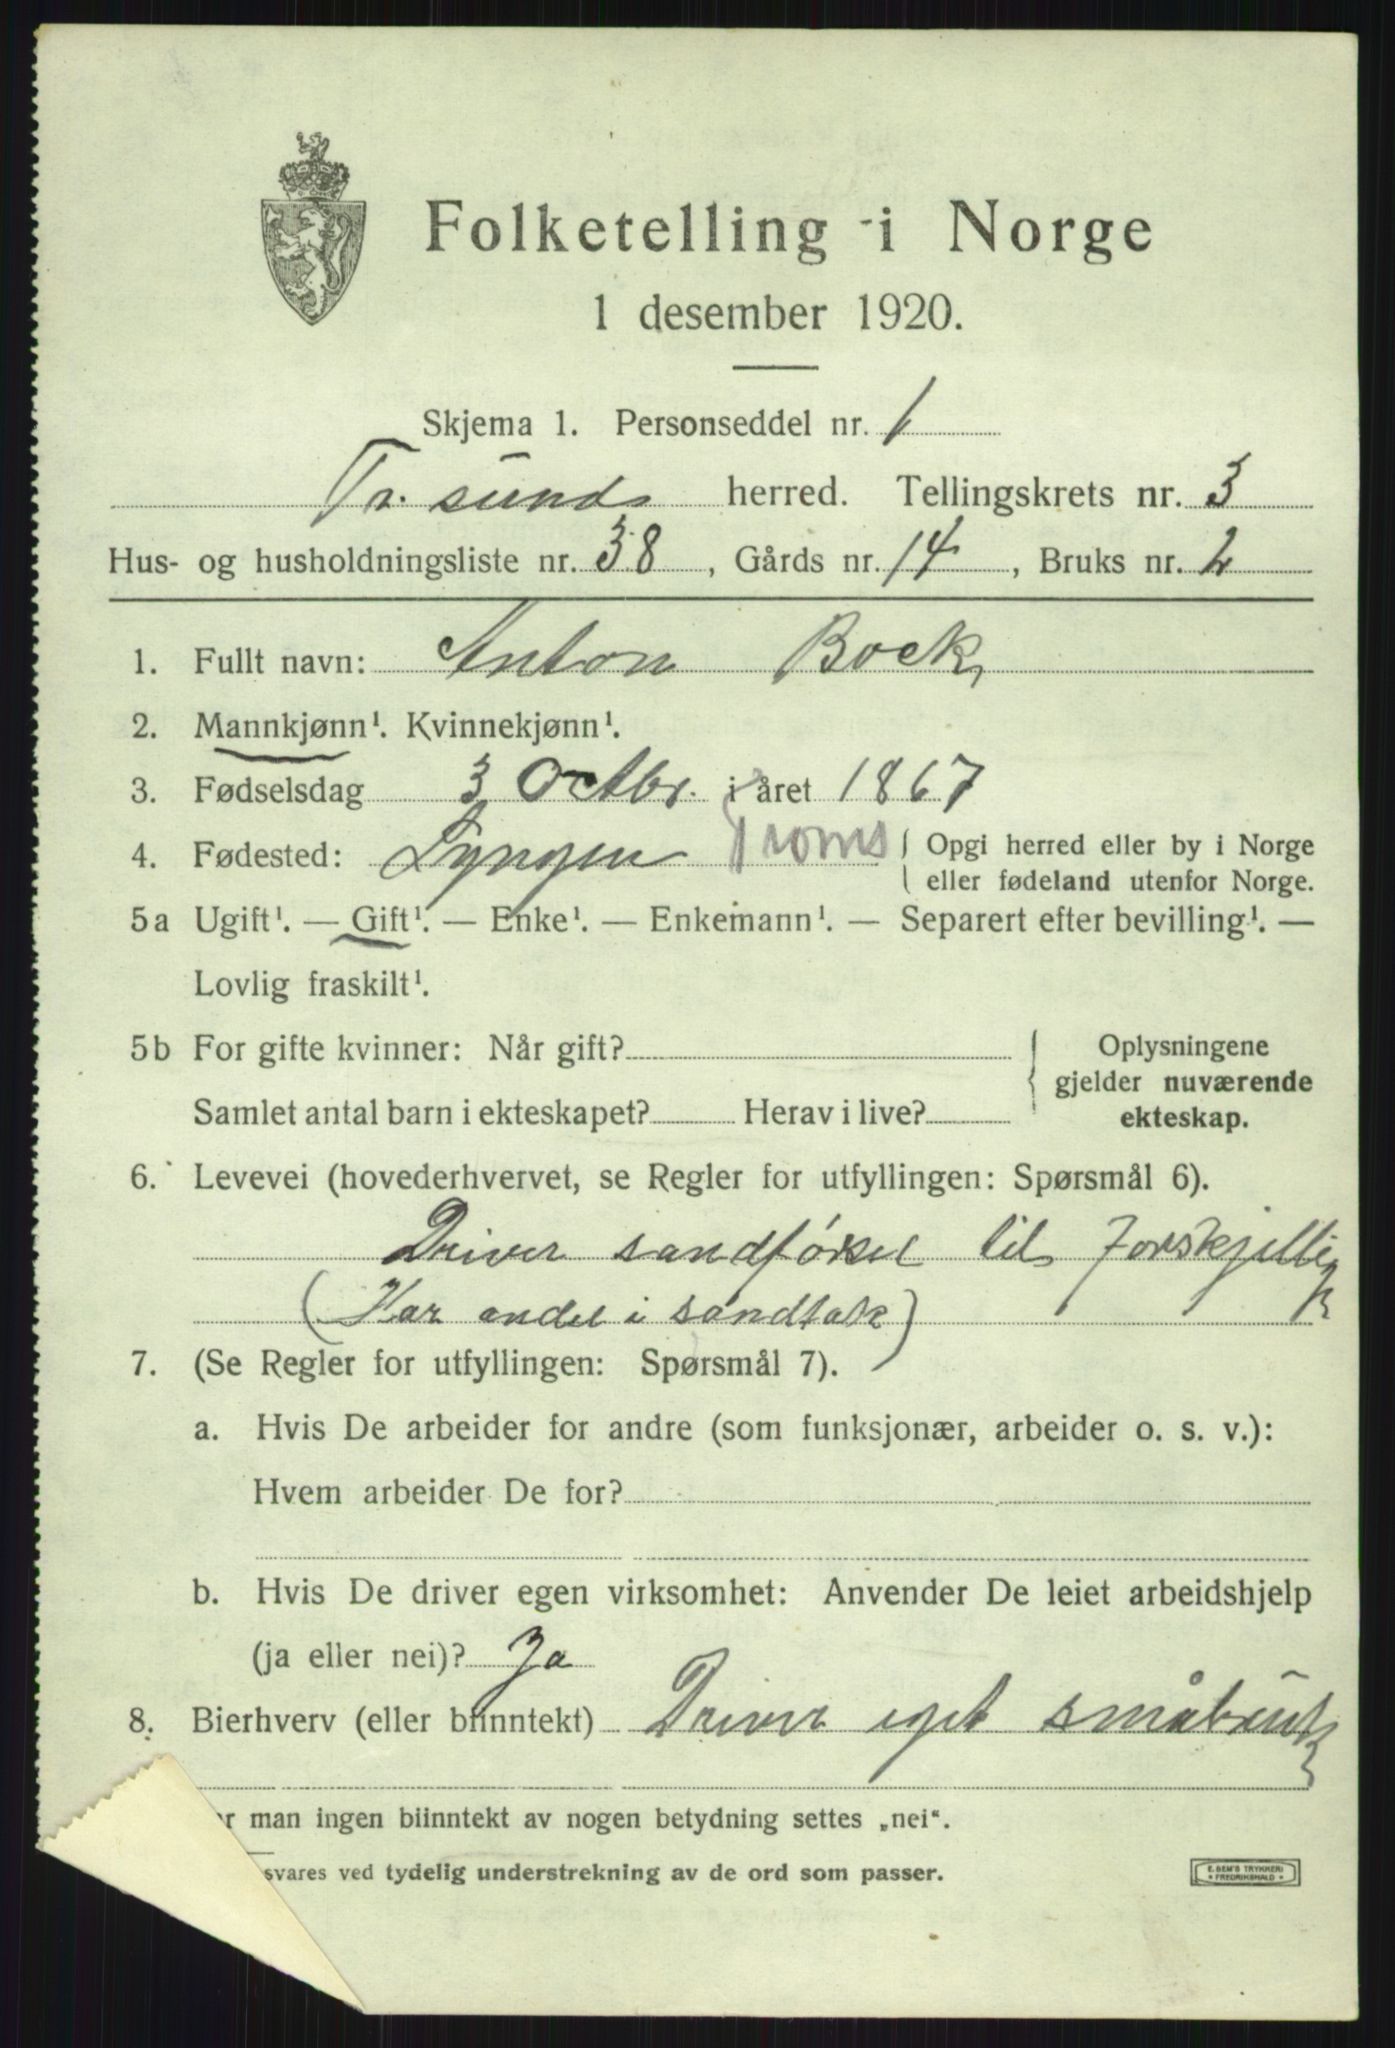 Folketelling i Norge
1 desember 1920.
Skjema 1. Personseddel nr. 1
Tr. sunds herred. Tellingskrets nr. 3
Hus- og husholdningsliste nr. 38, Gårds nr. 14, Bruks nr. 2
1. Fullt navn: Anton Bock
2. Mannkjønn¹. Kvinnekjønn¹.
3. Fødselsdag 3 Octbr. i året 1867
4. Fødested: Lyngen Troms { Opgi herred eller by i Norge
eller fødeland utenfor Norge.
5a Ugift¹. — Gift¹. — Enke¹. — Enkemann¹. — Separert efter bevilling¹. —
Lovlig fraskilt¹.
5b For gifte kvinner: Når gift? { Oplysningene
gjelder nuværende
Samlet antal barn i ekteskapet? Herav i live? ekteskap.
6. Levevei (hovederhvervet, se Regler for utfyllingen: Spørsmål 6).
Driver sandførsel til Forskjellig
(Har andel i sandtak)
7. (Se Regler for utfyllingen: Spørsmål 7).
a. Hvis De arbeider for andre (som funksjonær, arbeider o. s. v.):
Hvem arbeider De for?
b. Hvis De driver egen virksomhet: Anvender De leiet arbeidshjelp
(ja eller nei)? Ja
8. Bierhverv (eller biinntekt) Driver eget småbruk
man ingen biinntekt av nogen betydning settes „nei“.
svares ved tydelig understrekning av de ord som passer.
E. SEM'S TRYKKERI
* FREDRIKSHALD *